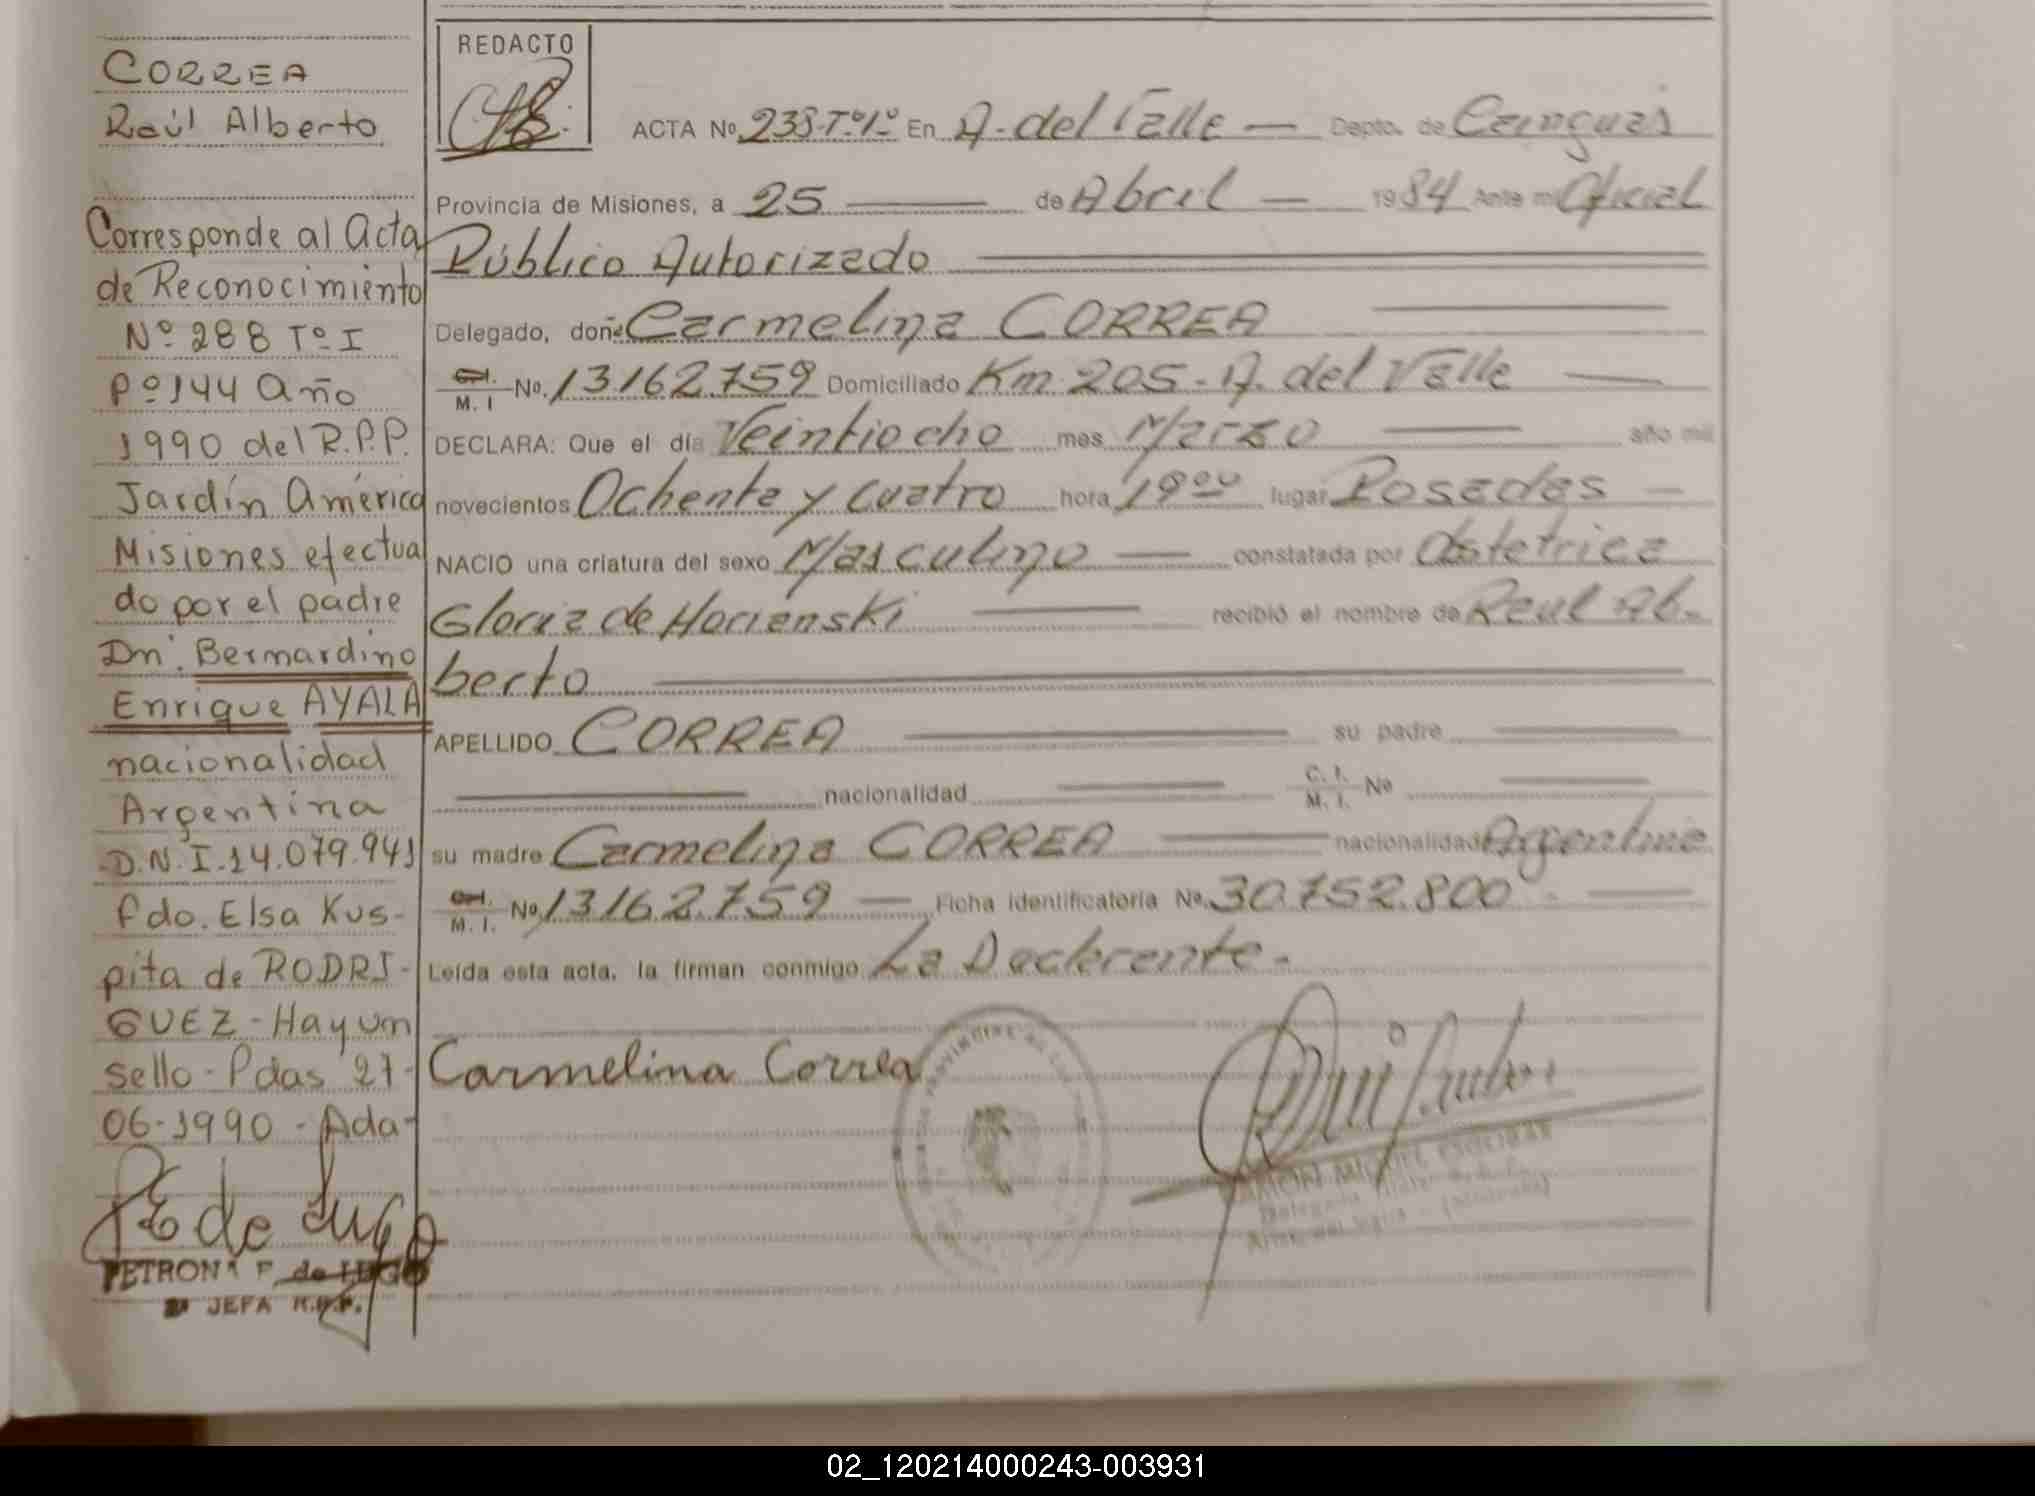 CORREA
Raúl Alberto
Corresponde al Acta
de Reconocimiento
Nº 288 Tº I
Pº 144 Año
1990 del R.P.P.
Jardín América
Misiones efectua
do por el padre
Dn. Bernardino
Enrique AYALA
nacionalidad
Argentina
D.N.I. 14.079.941
fdo. Elsa Kus-
pita de RODRI-
GUEZ - Hay un
sello - Pdas 27-
06-1990 - Ada-
PE de Lugo
PETRONA F. de LUGO
JEFA R.P.P.
REDACTO
ACTA Nº 238-Tº1º En A. del Valle — Depto. de Cainguas
Provincia de Misiones, a 25 — de Abril — 1984 Ante mi Oficial
Público Autorizado
Delegado, doña Carmelina CORREA
C.I. M. I Nº. 13162.759 Domiciliado Km. 205 - A. del Valle —
DECLARA: Que el día Veintiocho mes Marzo — año mil
novecientos Ochenta y cuatro hora 19⁰⁰ lugar Posadas —
NACIO una criatura del sexo Masculino — constatada por Obstetrica
Gloria de Horianski — recibió el nombre de Raul Al-
berto
APELLIDO CORREA — su padre —
— nacionalidad — C. I. M. I. Nº —
su madre Carmelina CORREA — nacionalidad Argentina
C.I. M. I. Nº 13162.759 — Ficha identificatoria Nº. 30.752.800 —
Leída esta acta, la firman conmigo La Declarante.-
Carmelina Correa
RAMON MIGUEL ESCOBAR
02_120214000243-003931